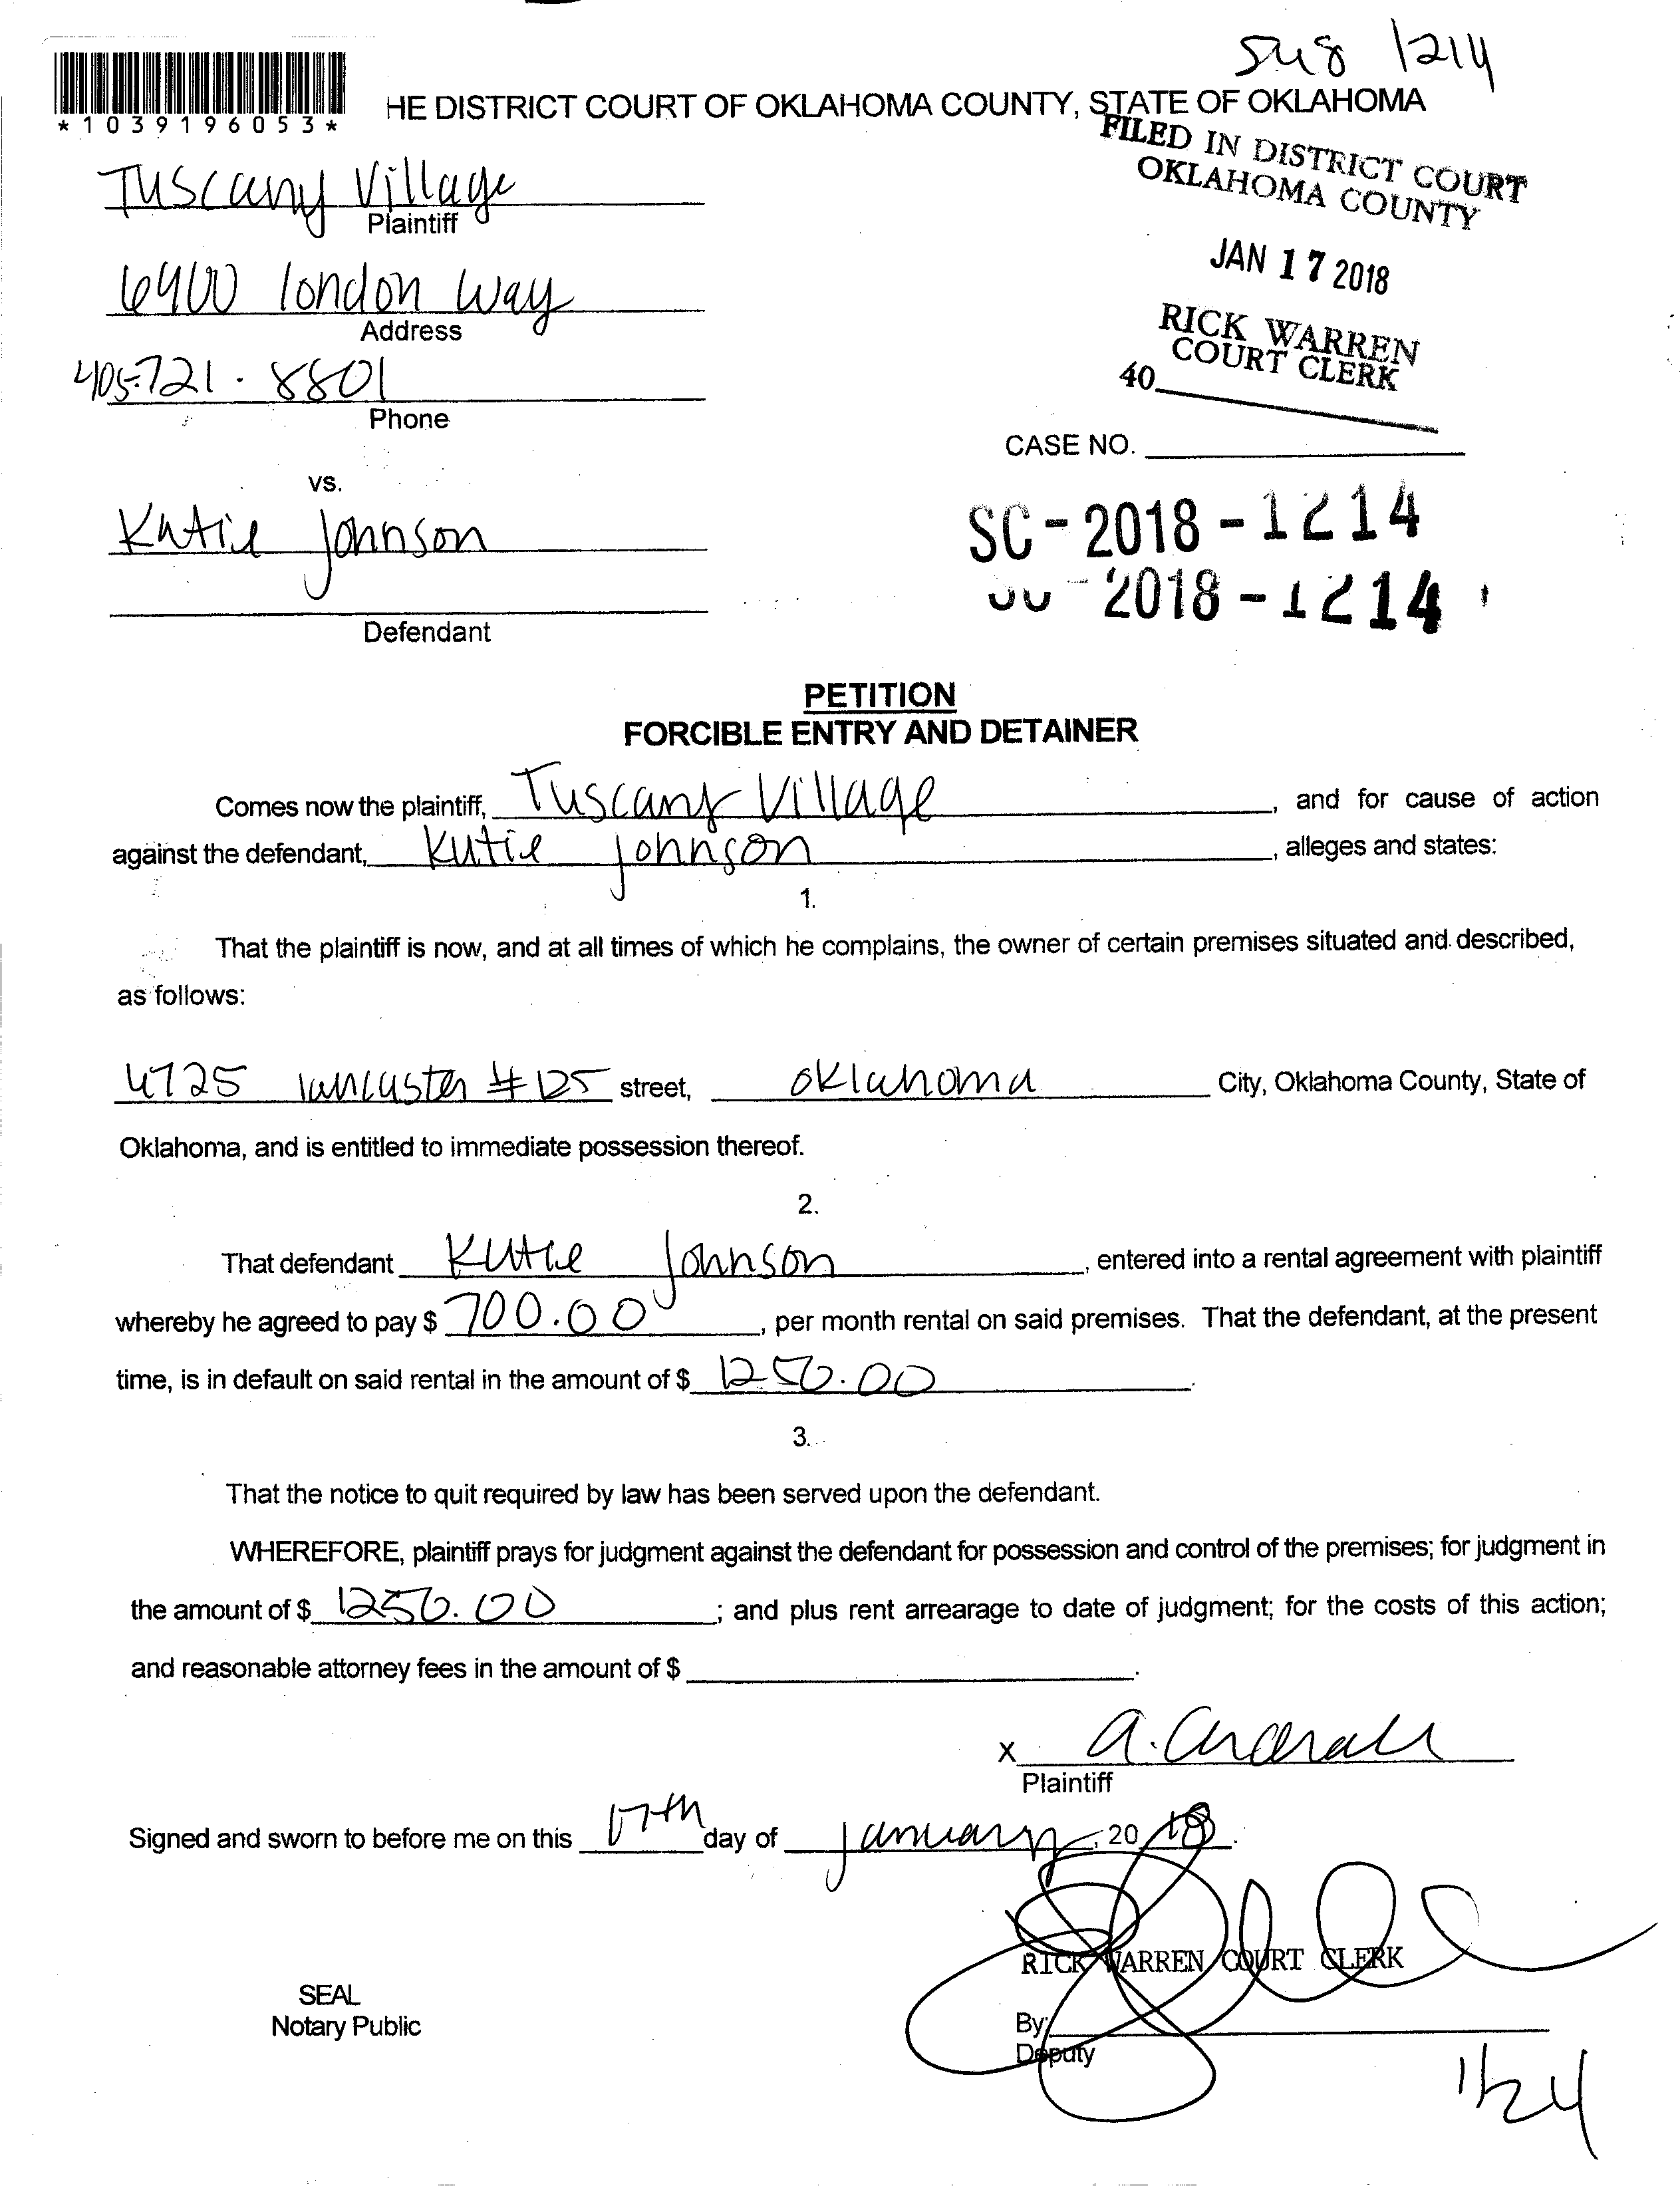 SC18 1214
*1039196053*
HE DISTRICT COURT OF OKLAHOMA COUNTY, STATE OF OKLAHOMA
FILED IN DISTRICT COURT
OKLAHOMA COUNTY
Tuscany Village
Plaintiff
JAN 17 2018
6400 london way
Address
RICK WARREN
COURT CLERK
40
405.721.8801
Phone
CASE NO.
vs.
SC-2018-1214
Katie Johnson
2018-1214
Defendant
PETITION
FORCIBLE ENTRY AND DETAINER
Comes now the plaintiff, Tuscany Village, and for cause of action
against the defendant, Katie Johnson, alleges and states:
1.
That the plaintiff is now, and at all times of which he complains, the owner of certain premises situated and described,
as follows:
4725 lancaster #125 street, oklahoma City, Oklahoma County, State of
Oklahoma, and is entitled to immediate possession thereof.
2.
That defendant Katie Johnson, entered into a rental agreement with plaintiff
whereby he agreed to pay $ 700.00, per month rental on said premises. That the defendant, at the present
time, is in default on said rental in the amount of $ 1250.00.
3.
That the notice to quit required by law has been served upon the defendant.
WHEREFORE, plaintiff prays for judgment against the defendant for possession and control of the premises; for judgment in
the amount of $ 1250.00; and plus rent arrearage to date of judgment; for the costs of this action;
and reasonable attorney fees in the amount of $ .
x
Plaintiff
Signed and sworn to before me on this 17th day of January, 2018.
RICK WARREN COURT CLERK
SEAL
Notary Public
By:
Deputy
1/24